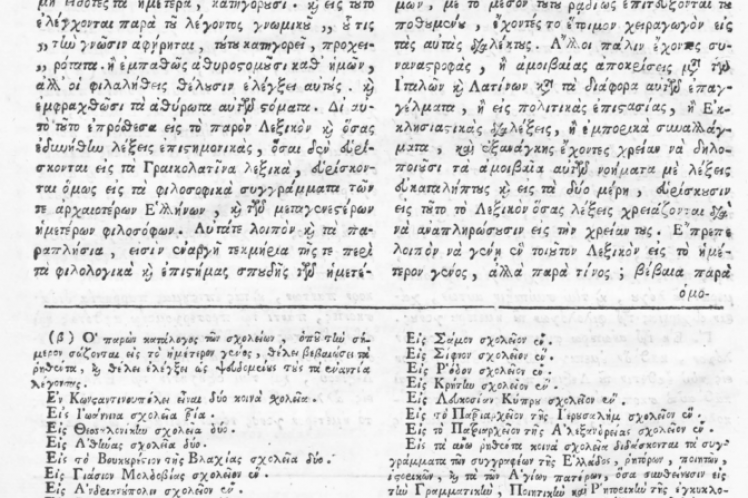 μὴ εἰδότες τὰ ἡμέτερα, κατηγορῦσι. κỳ εἰς τῦτο
ἐλέγχονται παρὰ τῦ λέγοντος γνωμικῶ „ ὧ τις
„ τ̃ω γνῶσιν ἀφῄρηται, τύτυ κατηγορεῖ, προχει-
„ ρότατα. ἢ ἐμπαθῶς ἀθυροςομῦσι καθ' ἡμῶν,
ἀλλ' οἱ φιλαλήθεις θέλυσιν ἐλέγξει αὐτύς. κỳ
ἐμφραχθῶσι τὰ ἀθύρωτα αὐτῶν ςόματα. Δι αὐ-
τὸ τῦτο ἐπρόθεσα εἰς τὸ παρὸν Λεξικὸν κỳ ὅσας
ἐδυνήθην λέξεις ἐπιςημονικὰς, ὅσαι δὲν εὑρί-
σκονται εἰς τὰ Γραικολατῖνα λεξικὰ, εὑρίσκον-
ται ὅμως εἰς τὰ φιλοσοφικὰ συγγράμματα τῶν
τε ἀρχαιοτέρων Ἑλλήνων, κỳ τῶν μεταγενεςέρων
ἡμετέρων φιλοσόφων. Αὐτάτε λοιπὸν κỳ τὰ πα-
ραπλήσια, εἰσὶν ἐναργῆ τεκμήρια τῆς τε περὶ
τὰ φιλολογικὰ κỳ ἐπιςήμας σπυδῆς τῶν ἡμετέ-
μων, μὲ τὸ μέσον τύτυ ῥαδίως ἐπιτυγχάνονται τῦ
ποθυμένυ, ἔχοντές το ἕτοιμον χειραγωγὸν εἰς
τὰς αὐτὰς διαλέκτυς. Ἄλλοι πάλιν ἔχοντες συ-
ναναςροφὰς, ἢ ἀμοιβαίας ἀποκρίσεις μετὰ τῶν
Ἰταλῶν κỳ Λατίνων κατὰ τὰ διάφορα αὐτῶν ἐπαγ-
γέλματα, ἢ εἰς πολιτικὰς ἐπιςασίας, ἢ Ἐκ-
κλησιαςικὰς διαλέξεις, ἢ ἐμπορικὰ συναλλάγ-
ματα, καὶ ἐξανάγκης ἔχοντες χρείαν νὰ δηλο-
ποιῦσι τὰ ἀμοιβαῖα αὐτῶν νοήματα μὲ λέξεις
εὐκαταλήπτυς κỳ εἰς τὰ δύο μέρη, εὑρίσκυσιν
εἰς τῦτο τὸ Λεξικὸν ὅσας λέξεις χρειάζονται διὰ
νὰ ἀναπληρώσυσιν εἰς τὴν χρείαν τυς. Ἔπρεπε
λοιπὸν νὰ γένῃ ἓν τοιῦτον Λεξικὸν εἰς τὸ ἡμέ-
τερον γένος, ἀλλὰ παρὰ τίνος; βέβαια παρὰ
ὁμο-
(β) Ὁ παρὼν κατάλογος τῶν σχολείων, ὁπῦ τὴν σή-
μερον σώζονται εἰς τὸ ἡμέτερον γένος, θέλει βεβαιώσει τὰ
ῥηθέντα, κỳ θέλει ἐλέγξει ὡς ψευδομένυς τὺς τὰ ἐναντία
λέγοντας.
Ἐν Κωνσαντινυπόλει εἶναι δύο κοινὰ σχολεῖα.
Εἰς Ἰωάννινα σχολεῖα τρία.
Εἰς Θεσσαλονίκην σχολεῖα δύο.
Εἰς Ἀθήνας σχολεῖα δύο.
Εἰς τὸ Βυκυρέςιον τῆς Βλαχίας σχολεῖα δύο.
Εἰς Γιάσιον Μολδοβίας σχολεῖον ἕν.
Εἰς Ἀνδριανύπολιν σχολεῖον ἕν.
Εἰς Σάμον σχολεῖον ἕν.
Εἰς Σίφνον σχολεῖον ἕν.
Εἰς Ῥόδον σχολεῖον ἕν.
Εἰς Κρήτην σχολεῖον ἕν.
Εἰς Λευκοσίαν Κύπρυ σχολεῖον ἕν.
Εἰς τὸ Πατριαρχεῖον τῆς Ἱερυσαλὴμ σχολεῖον ἕν.
Εἰς τὸ Πατριαρχεῖον τῆς Ἀλεξανδρείας σχολεῖον ἕν.
Εἰς τὰ ἄνω ῥηθέντα κοινὰ σχολεῖα διδάσκονται τὰ συγ-
γράμματα τῶν συγγραφέων τῆς Ἑλλάδος, ῥητόρων, ποιητῶν,
ἱςορικῶν, κỳ τὰ τῶν Ἁγίων πατέρων, ὅσα συνθείνυσιν εἰς
τὴν Γραμματικὴν, Ποιητικὴν καὶ Ῥητορικὴν τῆς ἐγκυκλο-